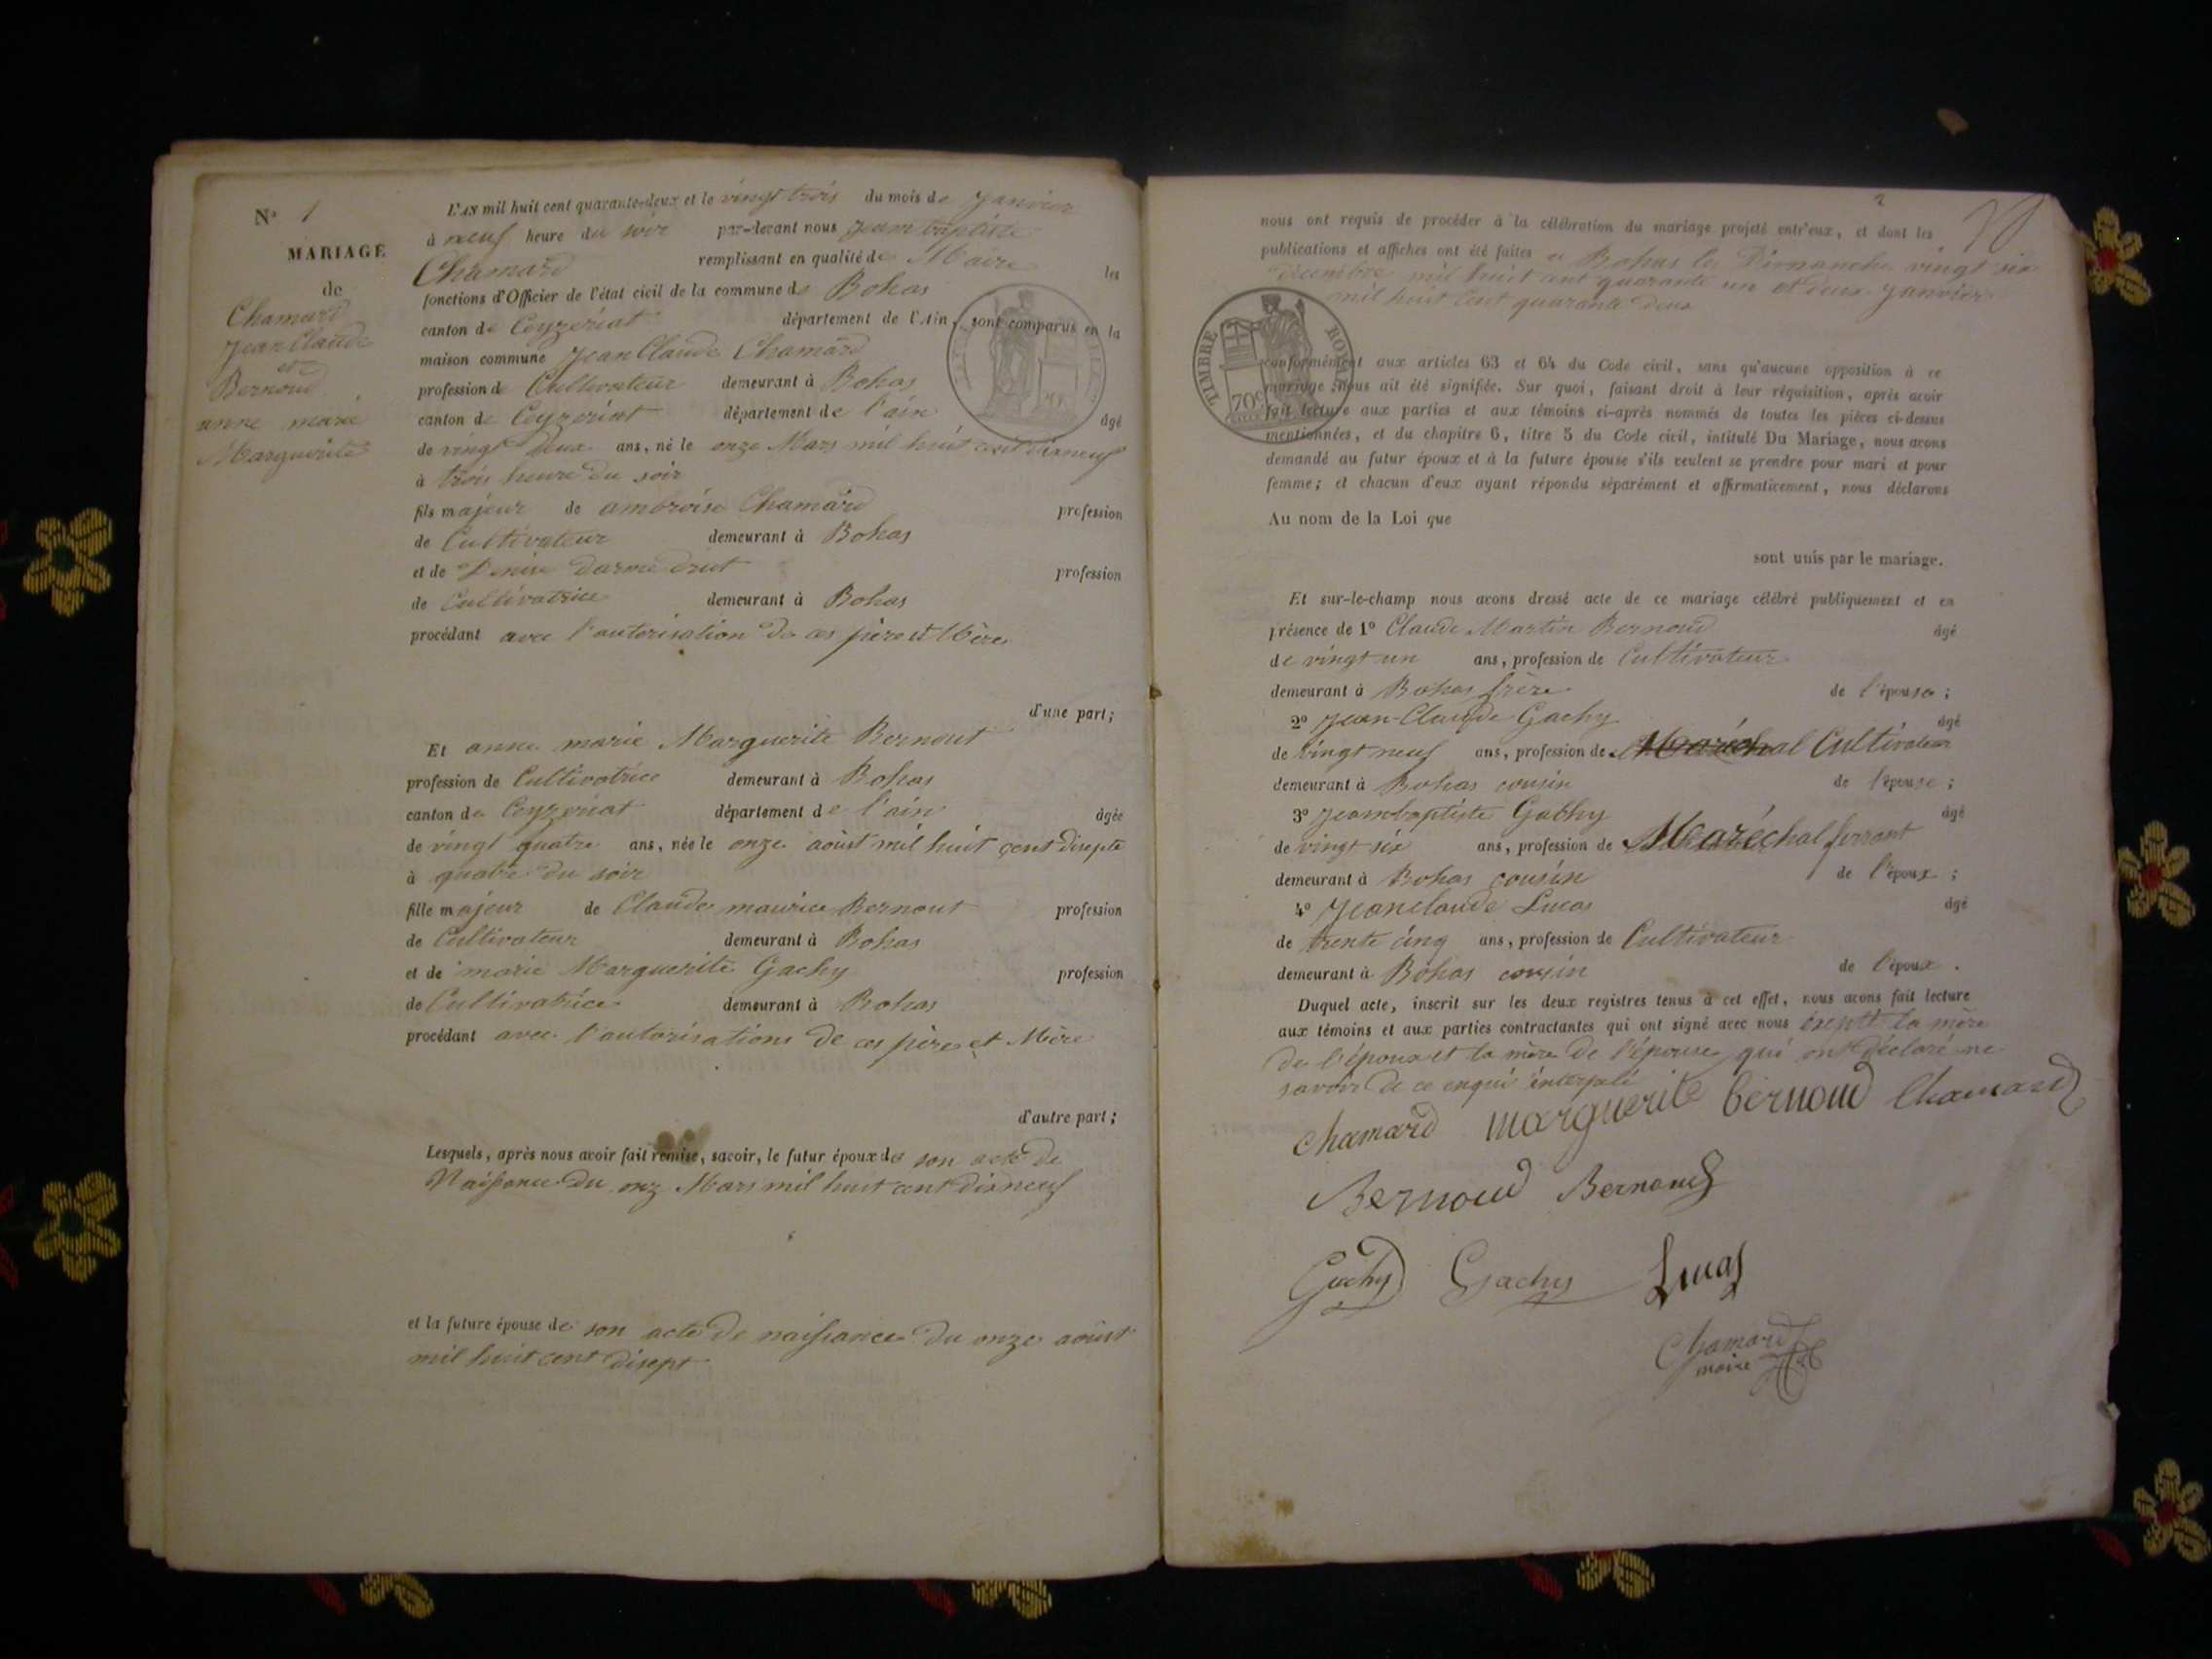 N° 1
MARIAGE
de
Chamard
Jean Claude
et
Bernoud
anne marie
Marguerite
L'AN mil huit cent quarante-deux et le vingt trois du mois de Janvier
à neuf heure du soir par-devant nous Jean baptiste
Chamard remplissant en qualité de Maire les
fonctions d'Officier de l'état civil de la commune de Bohas
canton de Ceyzeriat département de l'Ain, sont comparus en la
maison commune Jean Claude Chamard
profession de Cultivateur demeurant à Bohas
canton de Ceyzeriat département de l'ain âgé
de vingt deux ans, né le onze Mars mil huit cent dixneuf
à trois heure du soir
fils majeur de ambroise Chamard profession
de Cultivateur demeurant à Bohas
et de Denise profession
de Cultivatrice demeurant à Bohas
procédant avec l'autorisation de ces père et Mère
d'une part;
Et anne marie Marguerite Bernout
profession de Cultivatrice demeurant à Bohas
canton de Ceyzeriat département de l'ain âgée
de vingt quatre ans, née le onze aoust mil huit cent disepte
à quatre du soir
fille majeur de Claude maurice Bernout profession
de Cultivateur demeurant à Bohas
et de marie Marguerite Gachy profession
de Cultivatrice demeurant à Bohas
procédant avec l'autorisations de ces père et Mère
d'autre part;
Lesquels, après nous avoir fait remise, savoir, le futur époux de son acte de
Naissance du onz Mars mil huit cent dixneuf
et la future épouse de son acte de naissance du onze aoust
mil huit cent disept
2
nous ont requis de procéder à la célébration du mariage projeté entr'eux, et dont les
publications et affiches ont été faites a Bohas le Dimanche vingt six
décembre mil huit cent quarante un et deux Janvier
mil huit cent quarante deux
TIMBRE ROYAL
70c
conformément aux articles 63 et 64 du Code civil, sans qu'aucune opposition à ce
mariage nous ait été signifiée. Sur quoi, faisant droit à leur réquisition, après avoir
fait lecture aux parties et aux témoins ci-après nommés de toutes les pièces ci-dessus
mentionnées, et du chapitre 6, titre 5 du Code civil, intitulé Du Mariage, nous avons
demandé au futur époux et à la future épouse s'ils veulent se prendre pour mari et pour
femme; et chacun d'eux ayant répondu séparément et affirmativement, nous déclarons
Au nom de la Loi que
sont unis par le mariage.
Et sur-le-champ nous avons dressé acte de ce mariage célébré publiquement et en
présence de 1° Claude Martin Bernoud âgé
de vingt un ans, profession de Cultivateur
demeurant à Bohas frère de l'épouse;
2° Jean-Claude Gachy âgé
de vingt neuf ans, profession de Maréchal Cultivateur
demeurant à Bohas cousin de l'épouse;
3° Jeanbaptiste Gabhy âgé
de vingt six ans, profession de Maréchal ferrant
demeurant à Bohas cousin de l'époux;
4° Jeanclaude Lucas âgé
de trente cinq ans, profession de Cultivateur
demeurant à Bohas cousin de l'époux.
Duquel acte, inscrit sur les deux registres tenus à cet effet, nous avons fait lecture
aux témoins et aux parties contractantes qui ont signé avec nous la mère
de l'époux et la mère de l'épouse qui ont déclaré ne
savoir de ce enqui
chamard marguerite bernoud Chamard
Bernoud Bernoud
Gachy Gachy Lucas
Chamard
maire